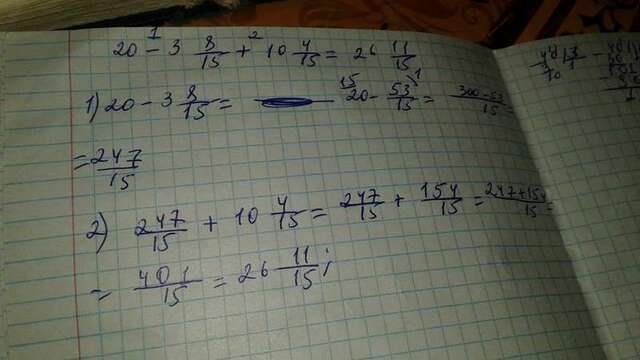 20 - 3 8/15 + 10 4/15 = 26 11/15
1) 20 - 3 8/15 = 20 - 53/15 = 300-53/15 =
= 247/15
2) 247/15 + 10 4/15 = 247/15 + 154/15 = 247+154/15 =
= 401/15 = 26 11/15;